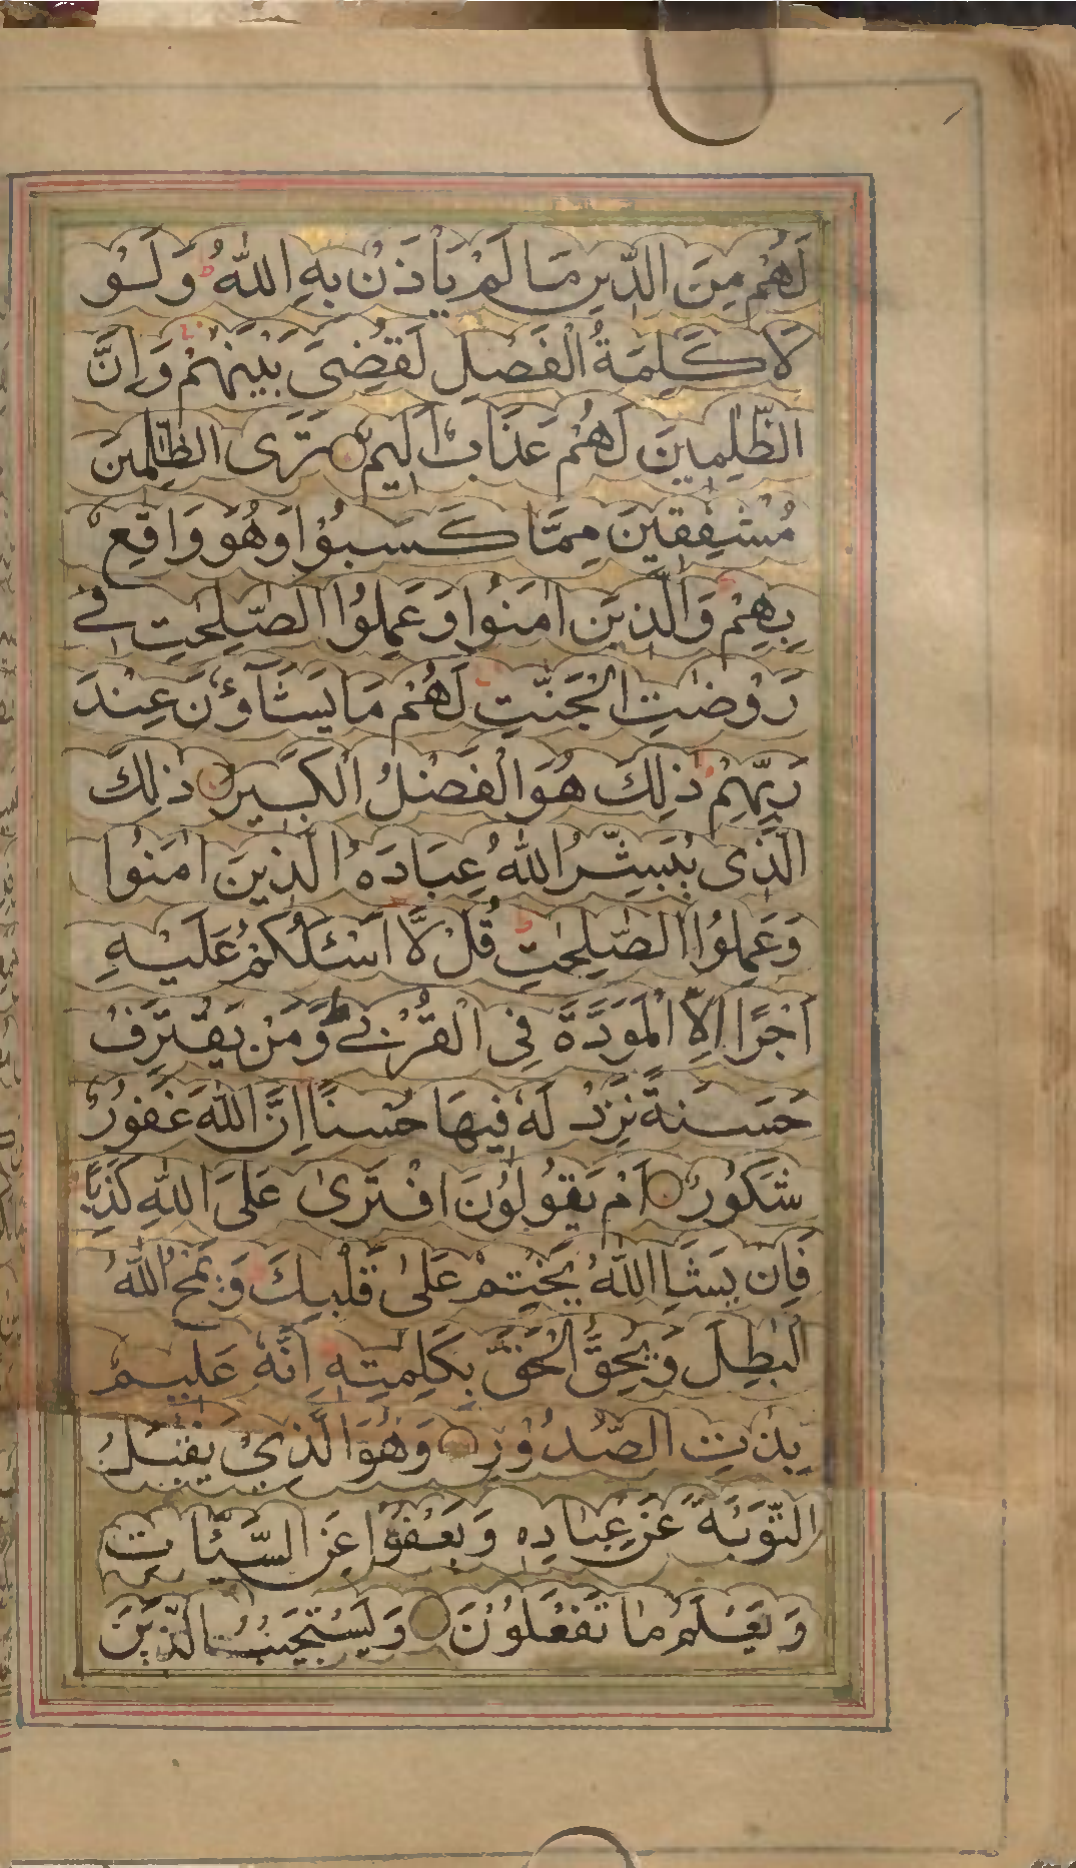 لَهُمْ مِنَ الدِّينِ مَا لَمْ يَأْذَنْ بِهِ اللّٰهُ ط وَلَوْ
لَا كَلِمَةُ الْفَصْلِ لَقُضِيَ بَيْنَهُمْ ط وَاِنَّ
الظّٰلِمِينَ لَهُمْ عَذَابٌ اَلِيمٌ ○ تَرَى الظّٰلِمِينَ
مُشْفِقِينَ مِمَّا كَسَبُوْا وَهُوَ وَاقِعٌ
بِهِمْ ط وَالَّذِينَ اٰمَنُوا وَعَمِلُوا الصّٰلِحٰتِ فِي
رَوْضٰتِ الْجَنّٰتِ لَهُمْ مَا يَشَآؤُنَ عِنْدَ
رَبِّهِمْ ط ذٰلِكَ هُوَ الْفَضْلُ الْكَبِيرُ ○ ذٰلِكَ
الَّذِى يُبَشِّرُ اللّٰهُ عِبَادَهُ الَّذِينَ اٰمَنُوا
وَعَمِلُوا الصّٰلِحٰتِ ط قُلْ لَّا اَسْئَلُكُمْ عَلَيْهِ
اَجْرًا اِلَّا الْمَوَدَّةَ فِى الْقُرْبٰى ط وَمَنْ يَقْتَرِفْ
حَسَنَةً نَزِدْ لَهٗ فِيهَا حُسْنًا اِنَّ اللّٰهَ غَفُورٌ
شَكُورٌ ○ اَمْ يَقُولُوْنَ افْتَرٰى عَلَى اللّٰهِ كَذِبًا
فَاِنْ يَشَاِ اللّٰهُ يَخْتِمْ عَلٰى قَلْبِكَ وَيَمْحُ اللّٰهُ
الْبٰطِلَ وَيُحِقُّ الْحَقَّ بِكَلِمٰتِهٖ اِنَّهٗ عَلِيمٌ
بِذٰتِ الصُّدُوْرِ ○ وَهُوَ الَّذِىْ يَقْبَلُ
التَّوْبَةَ عَنْ عِبَادِهٖ وَيَعْفُوْا عَنِ السَّيِّاٰتِ
وَيَعْلَمُ مَا تَفْعَلُوْنَ ○ وَيَسْتَجِيْبُ الَّذِيْنَ